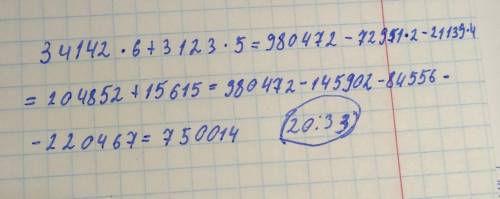 34142·6+3123·5=980472-72951·2-21139·4
=204852+15615=980472-145902-84556-
-220467=750014 20:33